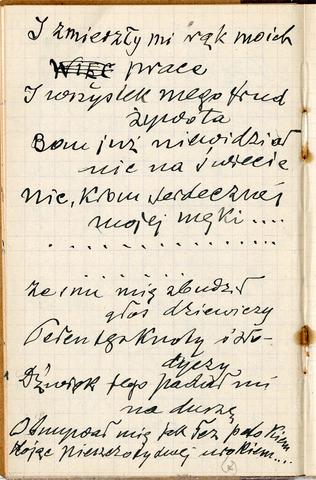 I zmierzły mi rąk moich
WIĘC prace
I wszystek mego trud
żywota
Bom już nie widział
nic na świecie
nic, krom serdecznej
mojej męki ....
. . . . . . . . . . . . .
. . . . . .
Ze snu mię zbudził
głos dziewiczy
Pełen tęsknoty i sło-
dyczy
Dźwięk jego padał mi
na duszę
Obmywał mię jak łez potokiem
Kojąc pieszczotliwej urokiem....